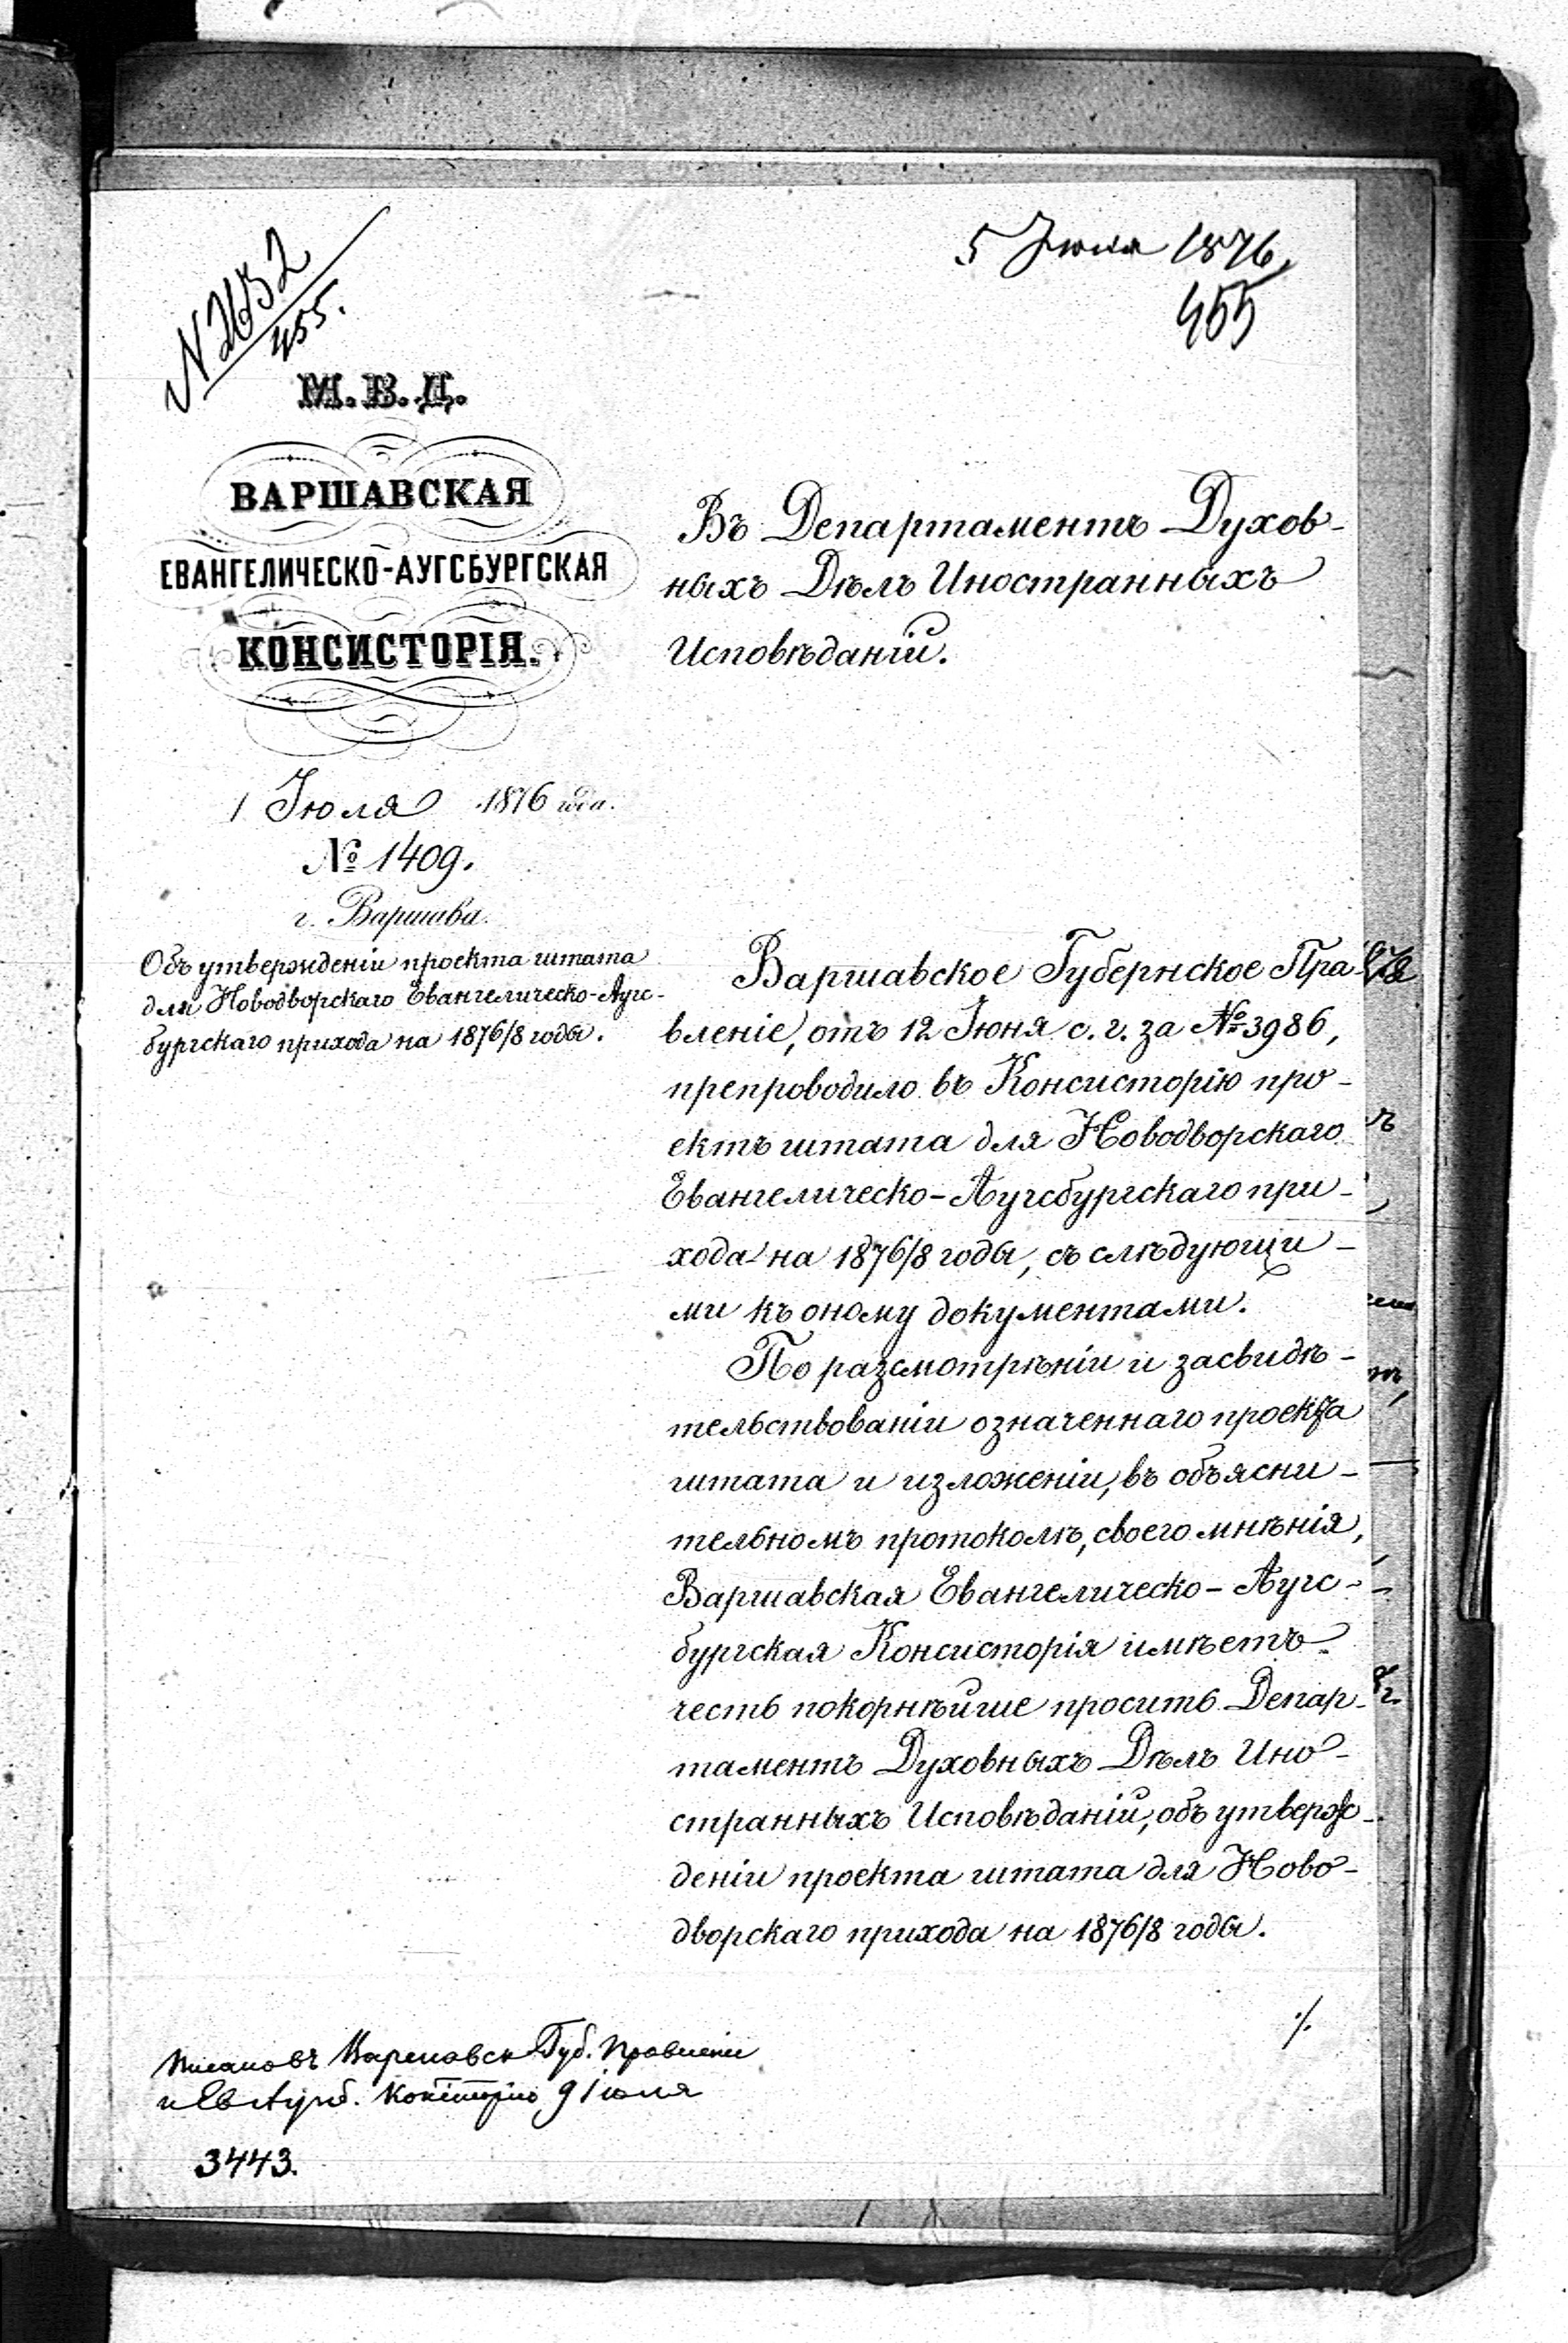 5 Июля 1876
455
N 2632
455.
М. В. Д.
ВАРШАВСКАЯ
ЕВАНГЕЛИЧЕСКО-АУГСБУРГСКАЯ
КОНСИСТОРІЯ.
1 Іюля 1876 года.
№ 1409.
г. Варшава.
Объ утвержденіи проекта штата
для Новодворскаго Евангелическо-Аугс-
бургскаго прихода на 1876/8 годы.
Въ Департаментъ Духов-
ныхъ Дѣлъ Иностранныхъ
Исповѣданій.
Варшавское Губернское Пра-
вленіе, отъ 12 Іюня с. г. за № 3986,
препроводило въ Консисторію про-
ектъ штата для Новодворскаго
Евангелическо-Аугсбургскаго при-
хода на 1876/8 годы, съ слѣдующи-
ми къ оному документами.
По разсмотрѣніи и засвидѣ-
тельствованіи означеннаго проекта
штата и изложеніи, въ объясни-
тельномъ протоколѣ, своего мнѣнія,
Варшавская Евангелическо-Аугс-
бургская Консисторія имѣетъ
честь покорнѣйше просить Депар-
таментъ Духовныхъ Дѣлъ Ино-
странныхъ Исповѣданій, объ утверж-
деніи проекта штата для Ново-
дворскаго прихода на 1876/8 годы.
./.
Варшавск Губ. Правленіи
и Ев Аугсб. Консисторію 9 Іюля
3443.